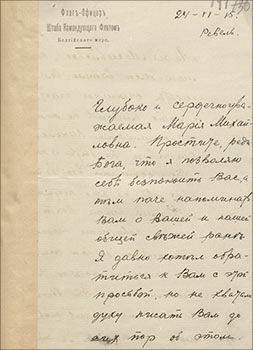 Флагъ-Офицеръ
Штаба Командующаго Флотомъ
Балтійскаго моря.
24-VI-15.
Ревель.
Глубоко и сердечноува-
жаемая Марія Михай-
ловна. Простите, ради
Бога, что я позволяю
себѣ безпокоить Васъ, а
тѣмъ паче напоминать
Вамъ о Вашей и нашей
общей свѣжей ранѣ.
Я давно хотѣлъ обра-
титься къ Вамъ съ этой
просьбой, но не хватало
духу писать Вамъ до
сихъ поръ объ этомъ.